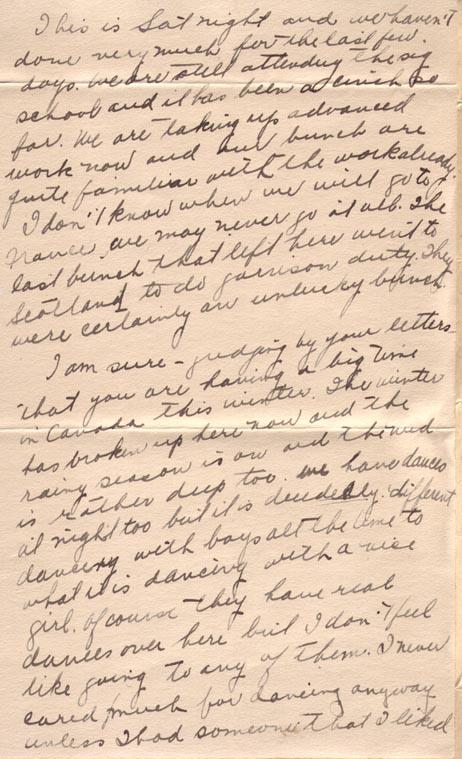 This is Sat night and we haven't
done very much for the last few
days. We are still attending the sig
school and it has been a cinch so
far. We are taking up advanced
work now and our bunch are
quite familiar with the work already.
I don't know when we will go to
France, we may never go at all. The
last bunch that left here went to
Scotland to do garrison duty. They
were certainly an unlucky bunch.
I am sure - judging by your letters
that you are having a big time
in Canada this winter. The winter
has broken up here now and the
rainy season is on and the mud
is rather deep too. We have dances
at night too but it is decidedly different
dancing with boys all the time to
what it is dancing with a nice
girl. Of course they have real
dances over here but I don't feel
like going to any of them. I never
cared much for dancing anyway
unless I had someone that I liked